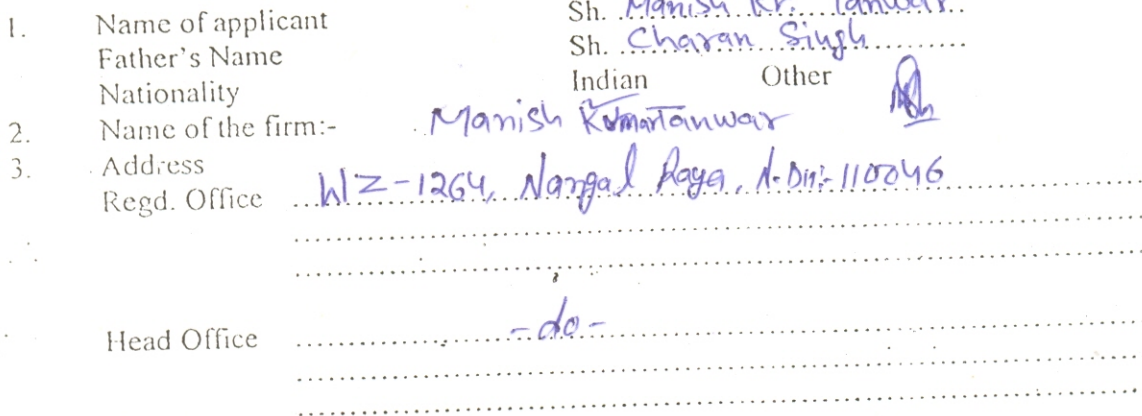 1. Name of applicant Sh. Manish Kr. Tanwar
Father's Name Sh. Charan Singh
Nationality Indian Other
2. Name of the firm:- Manish Kumar Tanwar
3. Address
Regd. Office WZ-1264, Nangal Raya, N. Dlh:- 110046
Head Office -do-